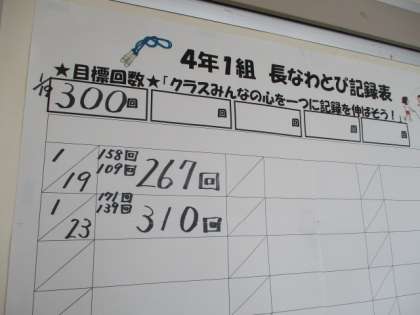 4年1組 長なわとび記録表
★目標回数★「クラスみんなの心を一つに記録を伸ばそう！」
1/19 300回 回 回 回 回
1/19 158回 109回 267回
1/23 171回 139回 310回